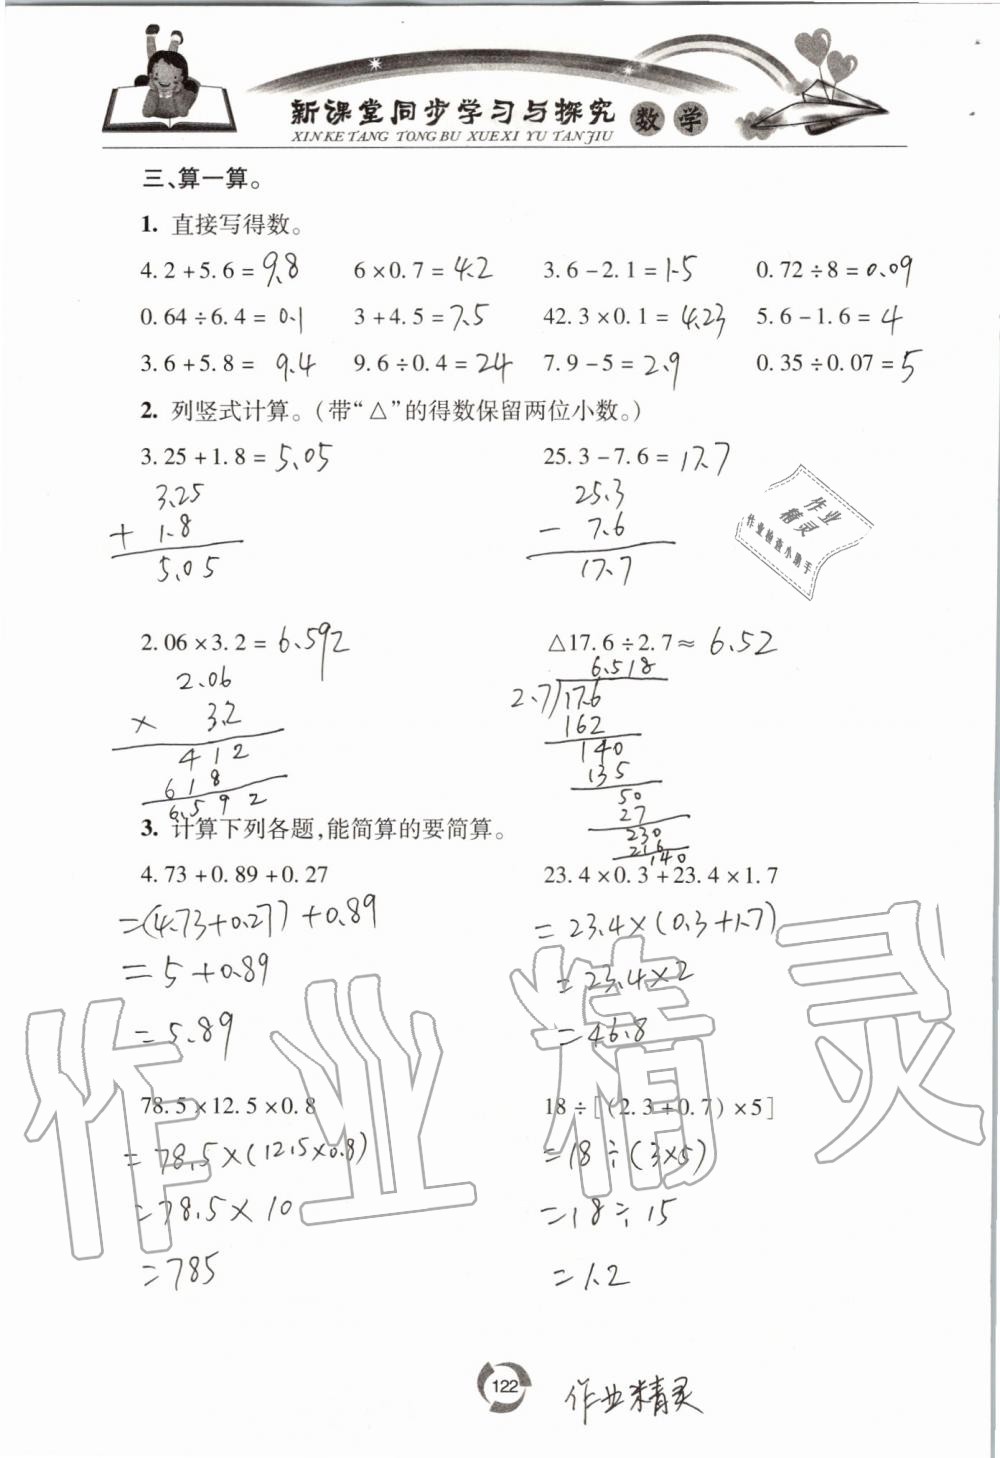 新课堂同步学习与探究 数学
XIN KE TANG TONG BU XUE XI YU TAN JIU
三、算一算。
1. 直接写得数。
4.2+5.6=9.8 6×0.7=4.2 3.6-2.1=1.5 0.72÷8=0.09
0.64÷6.4=0.1 3+4.5=7.5 42.3×0.1=4.23 5.6-1.6=4
3.6+5.8=9.4 9.6÷0.4=24 7.9-5=2.9 0.35÷0.07=5
2. 列竖式计算。(带“△”的得数保留两位小数。)
3.25+1.8=5.05 25.3-7.6=17.7
3.25 25.3
+ 1.8 - 7.6
5.05 17.7
作业
精灵
作业检查小助手
2.06×3.2=6.592 △17.6÷2.7≈6.52
2.06 6.518
× 3.2 2.7)17.6
412 162
618 140
6.592 135
50
27
230
216
140
3. 计算下列各题,能简算的要简算。
4.73+0.89+0.27 23.4×0.3+23.4×1.7
=(4.73+0.27)+0.89 =23.4×(0.3+1.7)
=5+0.89 =23.4×2
=5.89 =46.8
作业精灵
78.5×12.5×0.8 18÷[(2.3+0.7)×5]
=78.5×(12.5×0.8) =18÷(3×5)
=78.5×10 =18÷15
=785 =1.2
122
作业精灵